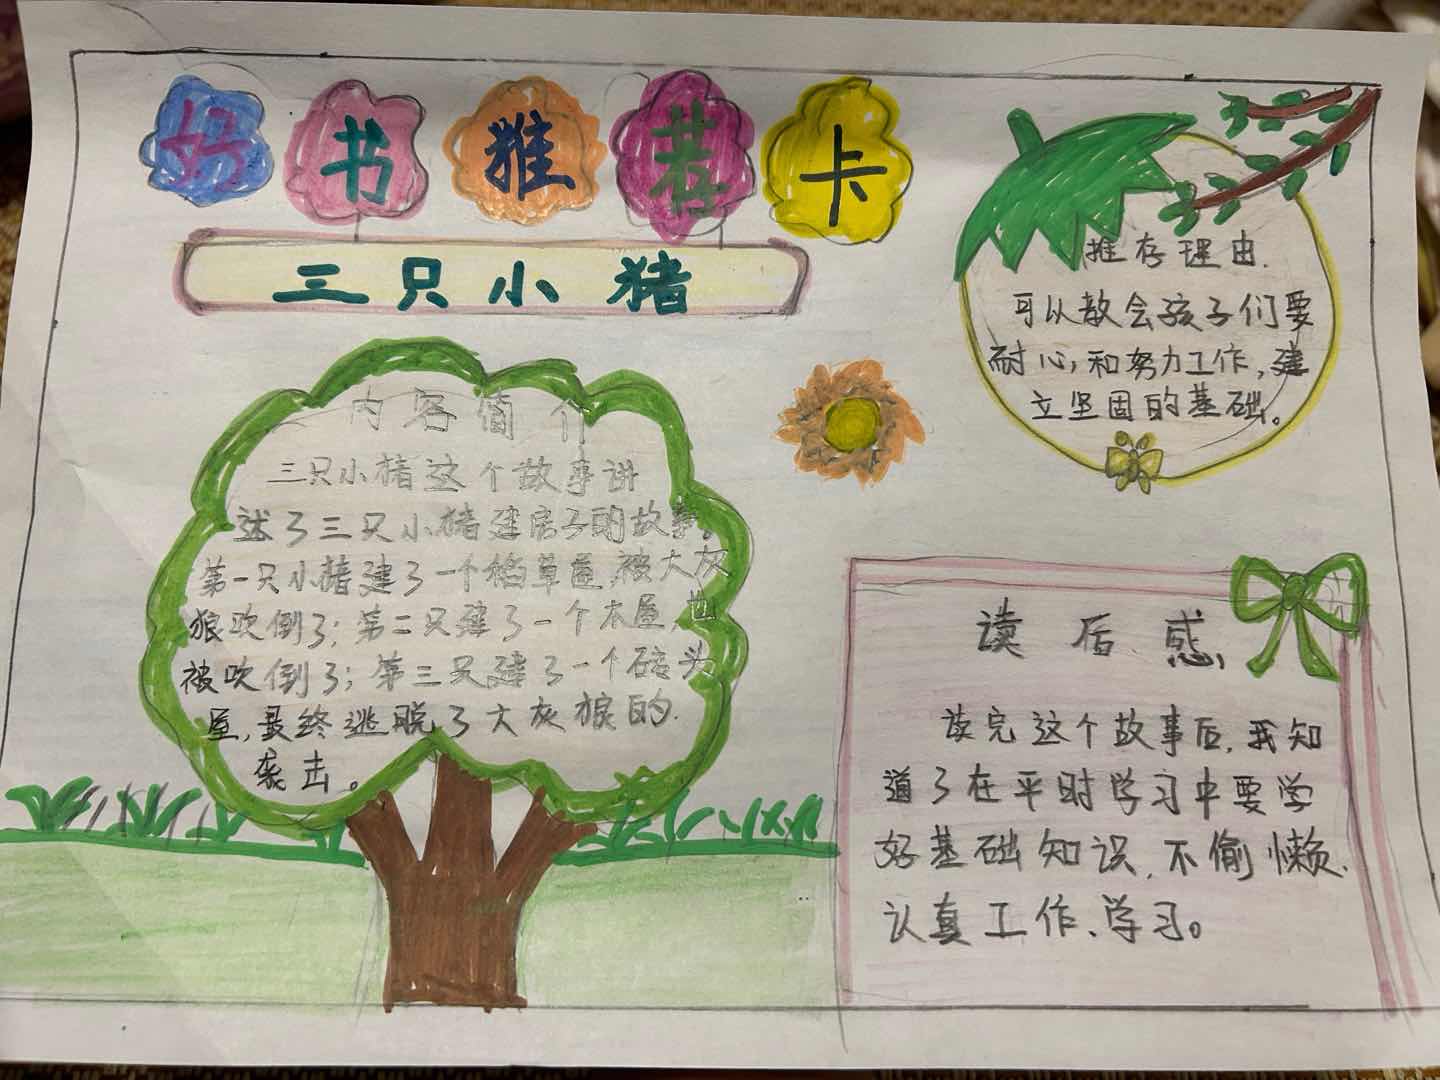 好书推荐卡
三只小猪
推存理由.
可以教会孩子们要
耐心,和努力工作,建
立坚固的基础。
内容简介
三只小猪这个故事讲
述了三只小猪建房子的故事。
第一只小猪建了一个稻草屋,被大灰
狼吹倒了;第二只建了一个木屋,也
被吹倒了;第三只建了一个砖头
屋,最终逃脱了大灰狼的.
袭击。
读后感,
读完这个故事后,我知
道了在平时学习中要学
好基础知识,不偷懒.
认真工作、学习。